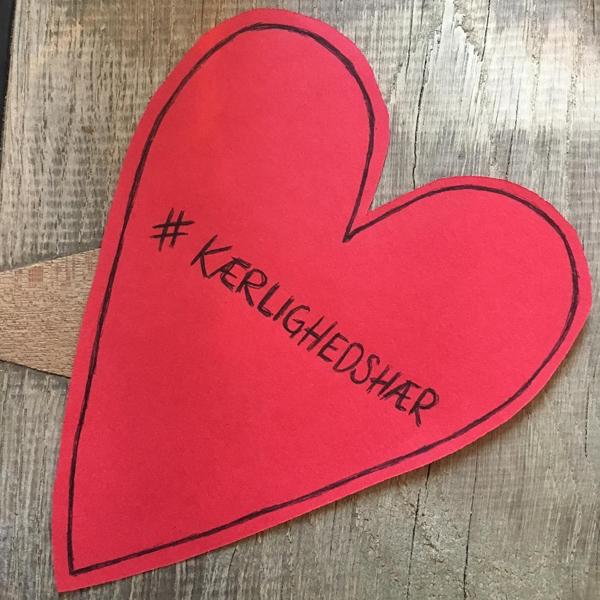 # KÆRLIGHEDSHÆR